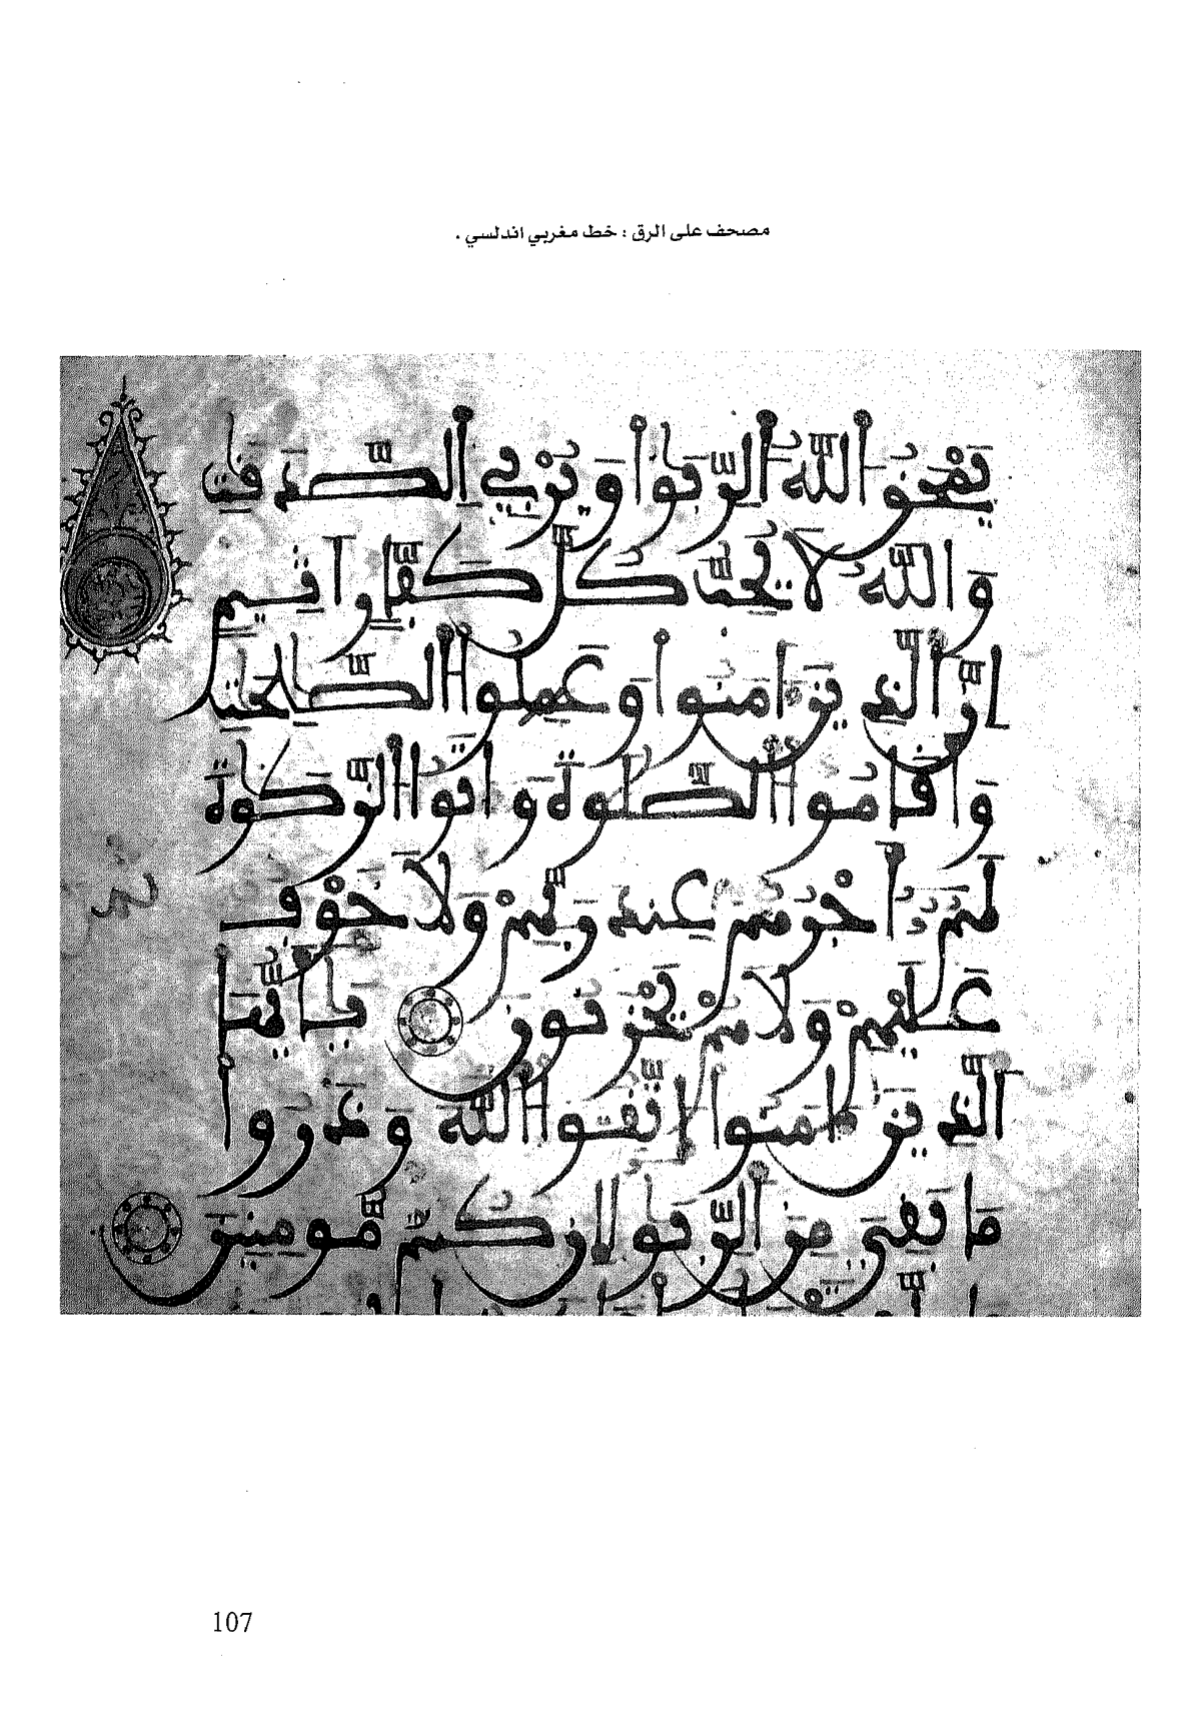 مصحف على الرق : خط مغربي اندلسي .
يَمْحَقُ اللَّهُ الرِّبَوٰا وَيُرْبِي الصَّدَقَٰتِ
وَاللَّهُ لَا يُحِبُّ كُلَّ كَفَّارٍ اَثِيمٍ
اِنَّ الَّذِينَ ءَامَنُوا وَعَمِلُوا الصَّٰلِحَٰتِ
وَأَقَامُوا الصَّلَوٰةَ وَءَاتَوُا الزَّكَوٰةَ
لَهُمُۥٓ أَجْرُهُمْ عِندَ رَبِّهِمْ وَلَا خَوْفٌ
عَلَيْهِمْ وَلَا هُمْ يَحْزَنُونَ يَٰأَيُّهَا
الَّذِينَ ءَامَنُوا اتَّقُوا اللَّهَ وَذَرُوا
مَا بَقِيَ مِنَ الرِّبَوٰا إِن كُنتُم مُّومِنِينَ
107